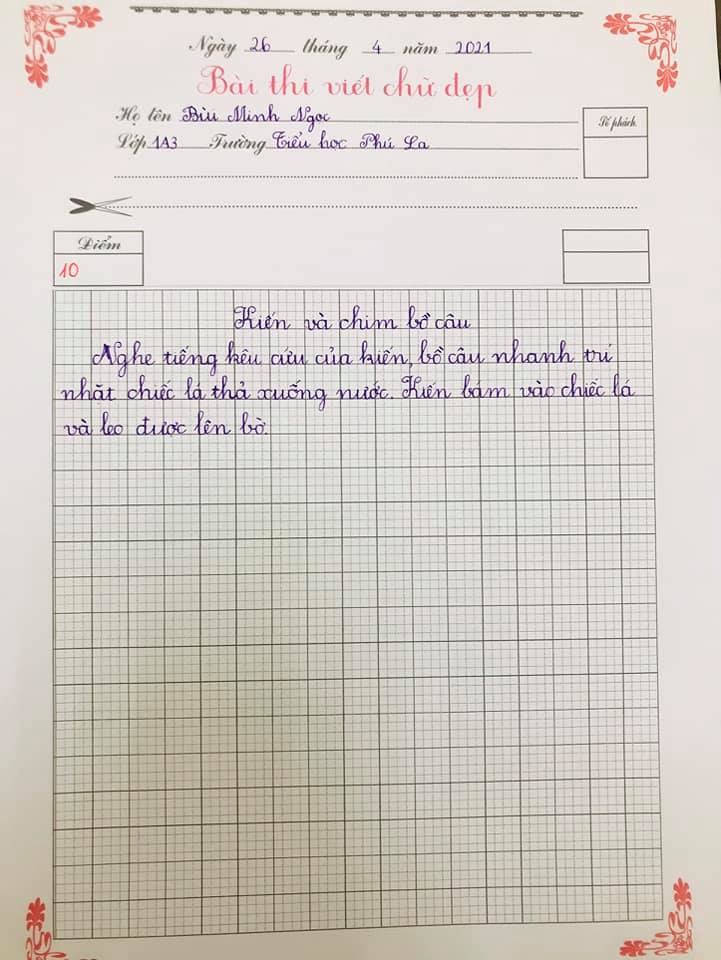 Ngày 26 tháng 4 năm 2021
Bài thi viết chữ đẹp
Họ tên Bùi Minh Ngọc
Số phách
Lớp 1A3 Trường Tiểu học Phú La
Điểm
10
Kiến và chim bồ câu
Nghe tiếng kêu cứu của kiến, bồ câu nhanh trí
nhặt chiếc lá thả xuống nước. Kiến bám vào chiếc lá
và leo được lên bờ.